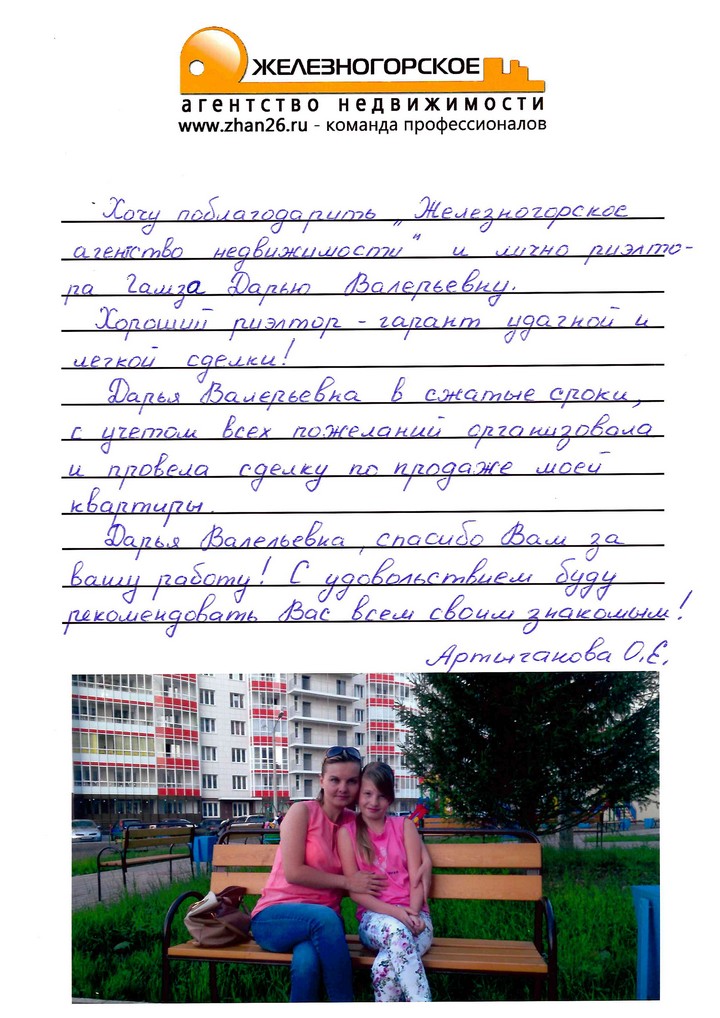 ЖЕЛЕЗНОГОРСКОЕ
агентство недвижимости
www.zhan26.ru - команда профессионалов
Хочу поблагодарить „Железногорское
агентство недвижимости" и лично риэлто-
ра Гамза Дарью Валерьевну.
Хороший риэлтор - гарант удачной и
легкой сделки!
Дарья Валерьевна в сжатые сроки,
с учетом всех пожеланий организовала
и провела сделку по продаже моей
квартиры.
Дарья Валельевна, спасибо Вам за
вашу работу! С удовольствием буду
рекомендовать Вас всем своим знакомым!
Артычанова О.Е.